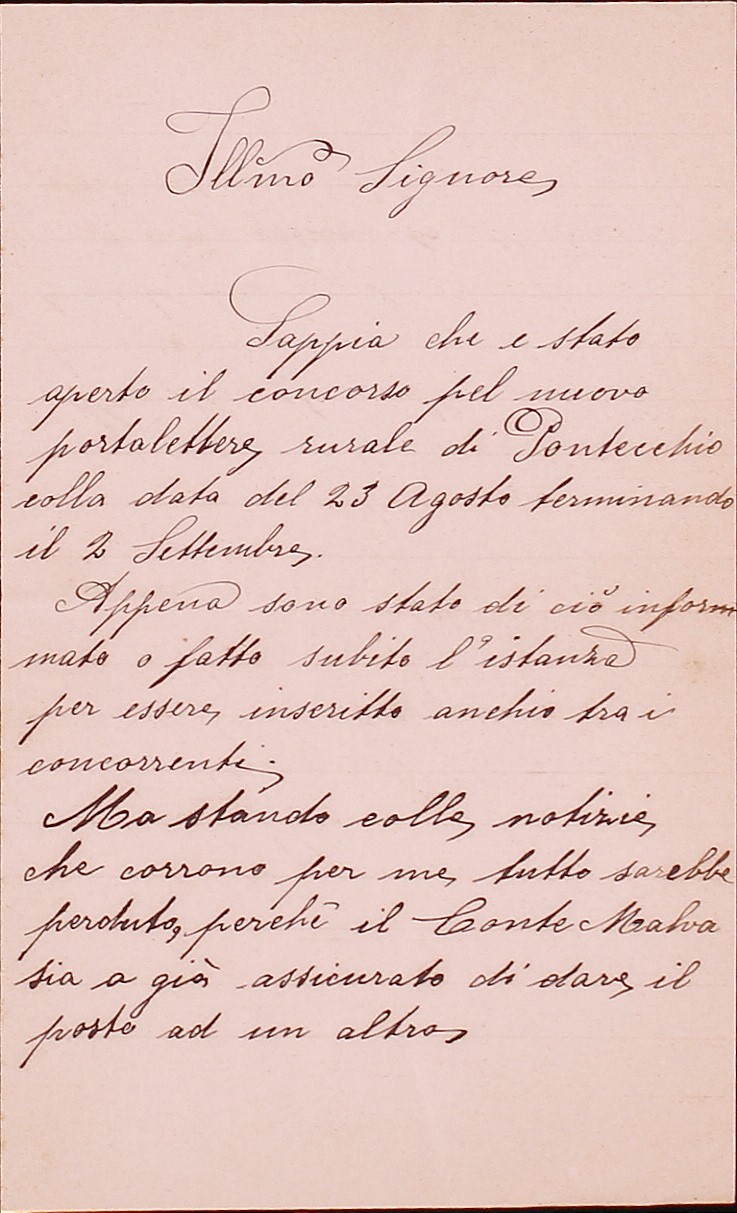 Illmo Signore
Sappia che e stato
aperto il concorso pel nuovo
portalettere rurale di Pontecchio
colla data del 23 Agosto terminando
il 2 Settembre.
Appena sono stato di ciò infor-
mato o fatto subito l'istanza
per essere inscritto anchio tra i
concorrenti.
Ma stando colle notizie
che corrono per me tutto sarebbe
perduto, perchè il Conte Malva
sia a già assicurato di dare il
posto ad un altro